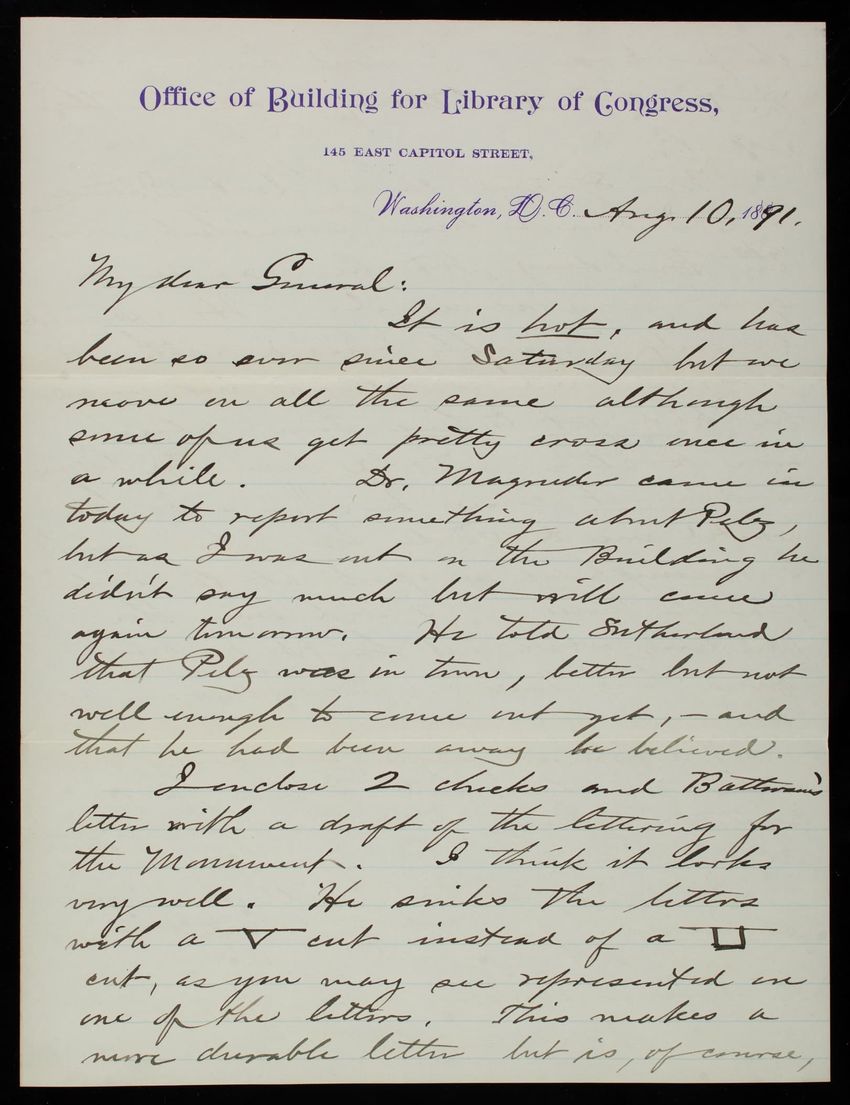 Office of Building for Library of Congress,
145 EAST CAPITOL STREET,
Washington, D.C. Aug. 10, 1891.
My dear General:
It is hot, and has
been so ever since Saturday but we
move on all the same although
some of us get pretty cross once in
a while. Dr. Magruder came in
today to report something about Pelz,
but as I was out on the Building he
didn't say much but will come
again tomorrow. He told Sutherland
that Pelz was in town, better but not
well enough to come out yet, – and
that he had been away he believed.
I enclose 2 checks and Batterson's
letter with a draft of the lettering for
the Monument. I think it looks
very well. He sinks the letters
with a V cut instead of a U
cut, as you may see represented on
one of the letters. This makes a
more durable letter but is, of course,